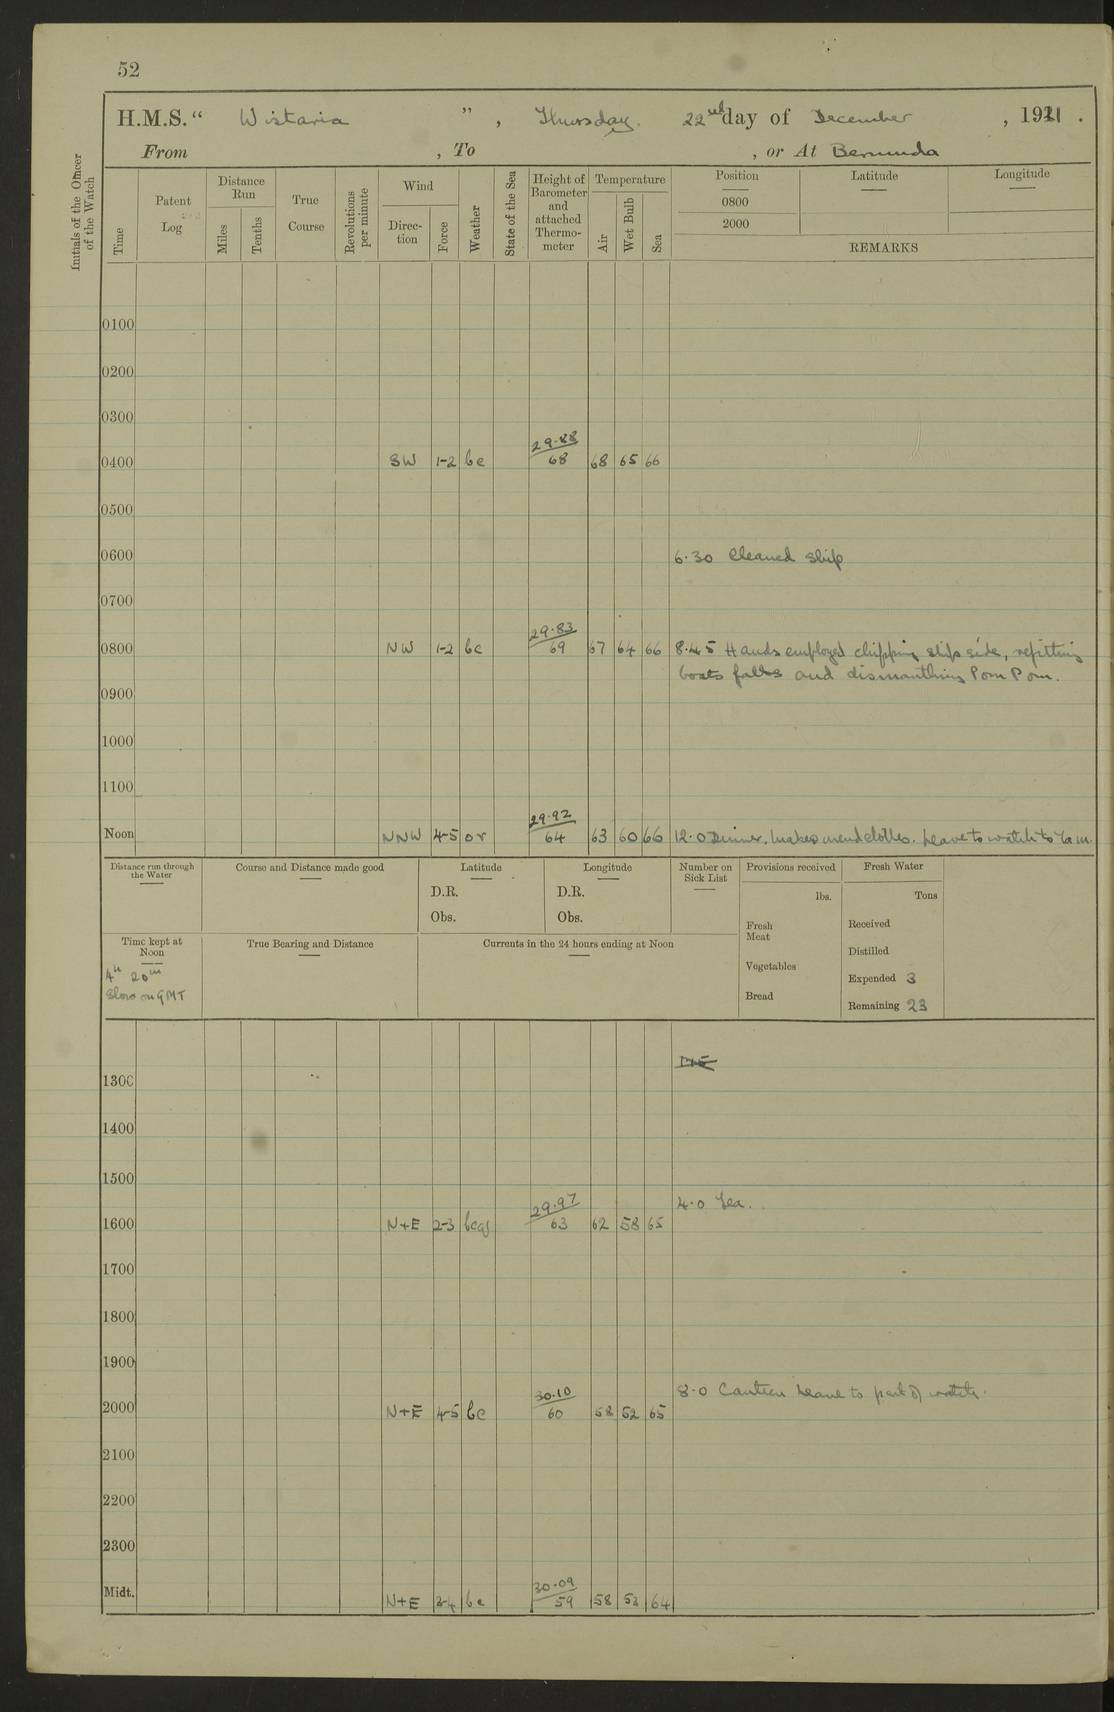 52
H.M.S. “ Wistaria ” , Thursday. 22nd day of December , 1921 .
From , To , or At Bermuda
Initials of the Officer of the Watch
Time
Patent Log
Distance Run
Miles
Tenths
True Course
Revolutions per minute
Wind
Direction
Force
Weather
State of the Sea
Height of Barometer and attached Thermometer
Temperature
Air
Wet Bulb
Sea
Position Latitude Longitude
0800
2000
REMARKS
0100
0200
0300
0400 SW 1-2 bc 29.88 68 68 65 66
0500
0600 6.30 Cleaned ship
0700
0800 NW 1-2 bc 29.83 69 67 64 66 8.45 Hands employed chipping ships side, refitting
boats falls and dismanthing Pom Pom.
0900
1000
1100
Noon NNW 4-5 or 29.92 64 63 60 66 12.0 Dinner, make & mend clothes. Leave to watch to 7am.
Distance run through the Water
Course and Distance made good
Latitude
D.R.
Obs.
Longitude
D.R.
Obs.
Number on Sick List
Provisions received
lbs.
Fresh Meat
Vegetables
Bread
Fresh Water
Tons
Received
Distilled
Expended 3
Remaining 23
Time kept at Noon
4h 20m
Slow on GMT
True Bearing and Distance
Currents in the 24 hours ending at Noon
1300
1400
1500
4.0 Tea.
1600 N+E 2-3 bcq 29.97 63 62 58 65
1700
1800
1900
8.0 Canteen Leave to part of watch.
2000 N+E 4-5 bc 30.10 60 58 52 65
2100
2200
2300
Midt. N+E 3-4 bc 30.09 59 58 53 64